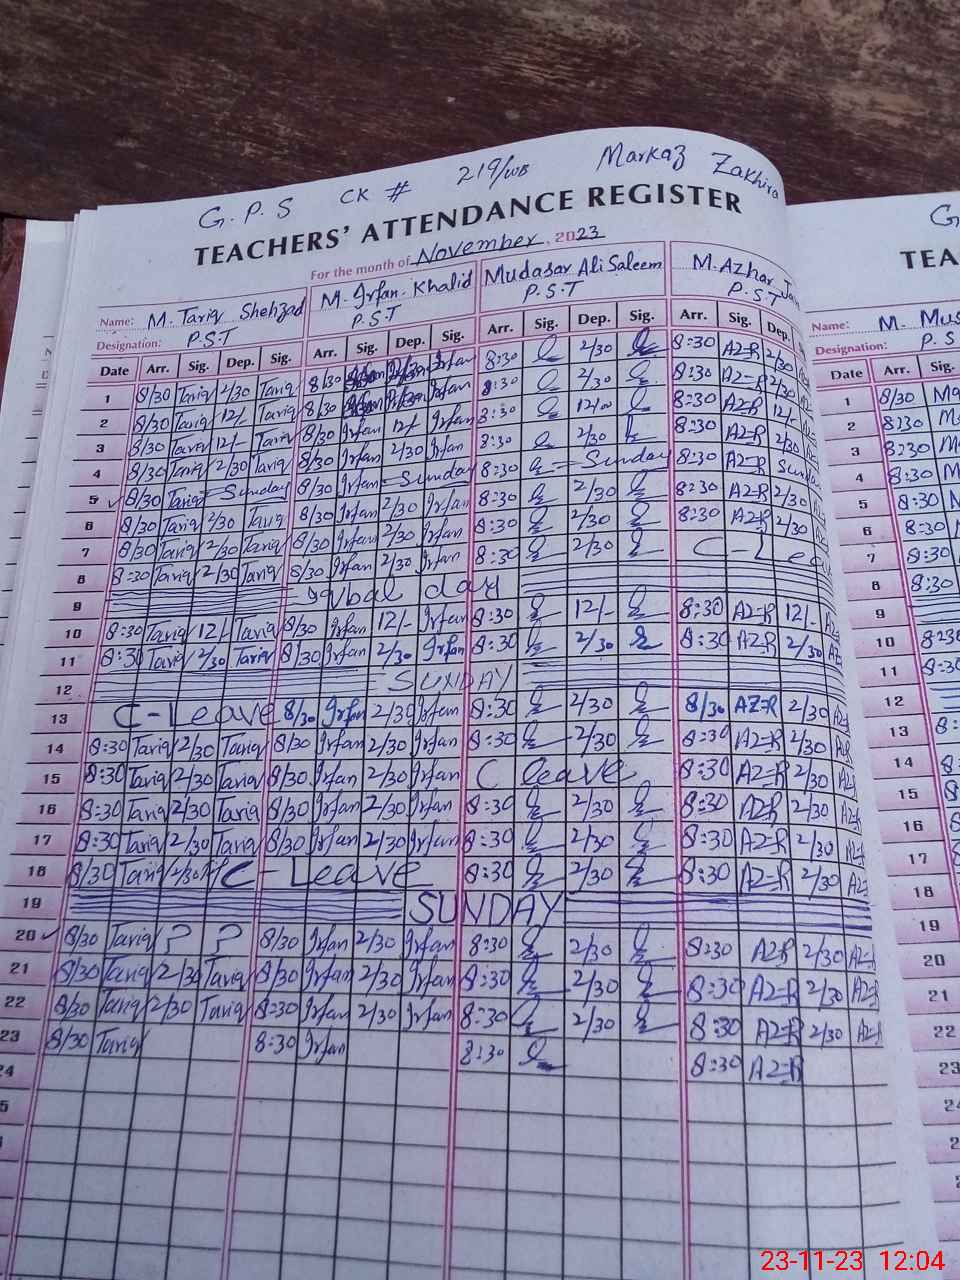 G.P.S CK # 219/WB Markaz Zakhira
TEACHERS' ATTENDANCE REGISTER
For the month of November, 2023
Name: M. Tariq Shehzad M. Irfan Khalid Mudasar Ali Saleem M. Azhar
Designation: P.S.T P.S.T P.S.T P.S.T
Date Arr. Sig. Dep. Sig. Arr. Sig. Dep. Sig. Arr. Sig. Dep. Sig. Arr. Sig. Dep.
1 8/30 Tariq 2/30 Tariq 8/30 Irfan 8:30 2/30 8:30 AZ=R 2/30
2 8/30 Tariq 12/- Tariq 8/30 Irfan 8:30 2/30 8:30 AZ=R 2/30
3 8/30 Tariq 12/- Tariq 8/30 Irfan 12/- Irfan 8:30 12/00 8:30 AZ=R 12/-
4 8/30 Tariq 2/30 Tariq 8/30 Irfan 2/30 Irfan 8:30 2/30 8:30 AZ=R 2/30
5 8/30 Tariq Sunday 8/30 Irfan Sunday 8:30 Sunday 8:30 AZ=R Sunday
6 8/30 Tariq 2/30 Tariq 8/30 Irfan 2/30 Irfan 8:30 2/30 8:30 AZ=R 2/30
7 8/30 Tariq 2/30 Tariq 8/30 Irfan 2/30 Irfan 8:30 2/30 8:30 AZ=R 2/30
8 8:30 Tariq 2/30 Tariq 8/30 Irfan 2/30 Irfan 8:30 2/30 C-Leave
9 Iqbal day
10 8:30 Tariq 12/- Tariq 8/30 Irfan 12/- Irfan 8:30 12/- 8:30 AZ=R 12/-
11 8:30 Tariq 2/30 Tariq 8/30 Irfan 2/30 Irfan 8:30 2/30 8:30 AZ=R 2/30
12 SUNDAY
13 C-Leave 8/30 Irfan 2/30 Irfan 8:30 2/30 8/30 AZ=R 2/30
14 8:30 Tariq 2/30 Tariq 8/30 Irfan 2/30 Irfan 8:30 2/30 8:30 AZ=R 2/30
15 8:30 Tariq 2/30 Tariq 8/30 Irfan 2/30 Irfan C leave 8:30 AZ=R 2/30
16 8:30 Tariq 2/30 Tariq 8/30 Irfan 2/30 Irfan 8:30 2/30 8:30 AZ=R 2/30
17 8:30 Tariq 2/30 Tariq 8/30 Irfan 2/30 Irfan 8:30 2/30 8:30 AZ=R 2/30
18 8/30 Tariq 2/30 C-Leave 8:30 2/30 8:30 AZ=R 2/30
19 SUNDAY
20 8/30 Tariq ? ? 8/30 Irfan 2/30 Irfan 8:30 2/30 8:30 AZ=R 2/30 AZ=R
21 8/30 Tariq 2/30 Tariq 8/30 Irfan 2/30 Irfan 8:30 2/30 8:30 AZ=R 2/30 AZ=R
22 8/30 Tariq 2/30 Tariq 8:30 Irfan 2/30 Irfan 8:30 2/30 8:30 AZ=R 2/30 AZ=R
23 8/30 Tariq 8:30 Irfan 8:30 8:30 AZ=R
24
G
TEA
Name: M. Mus
Designation: P S
Date Arr. Sig.
1 8/30
2 8:30
3 8:30
4 8:30
5 8:30
6 8:30
7 8:30
8 8:30
9
10 8:30
11 8:30
12
13 8:
14
15
16
17
18
19
20
21
22
23
24
23-11-23 12:04